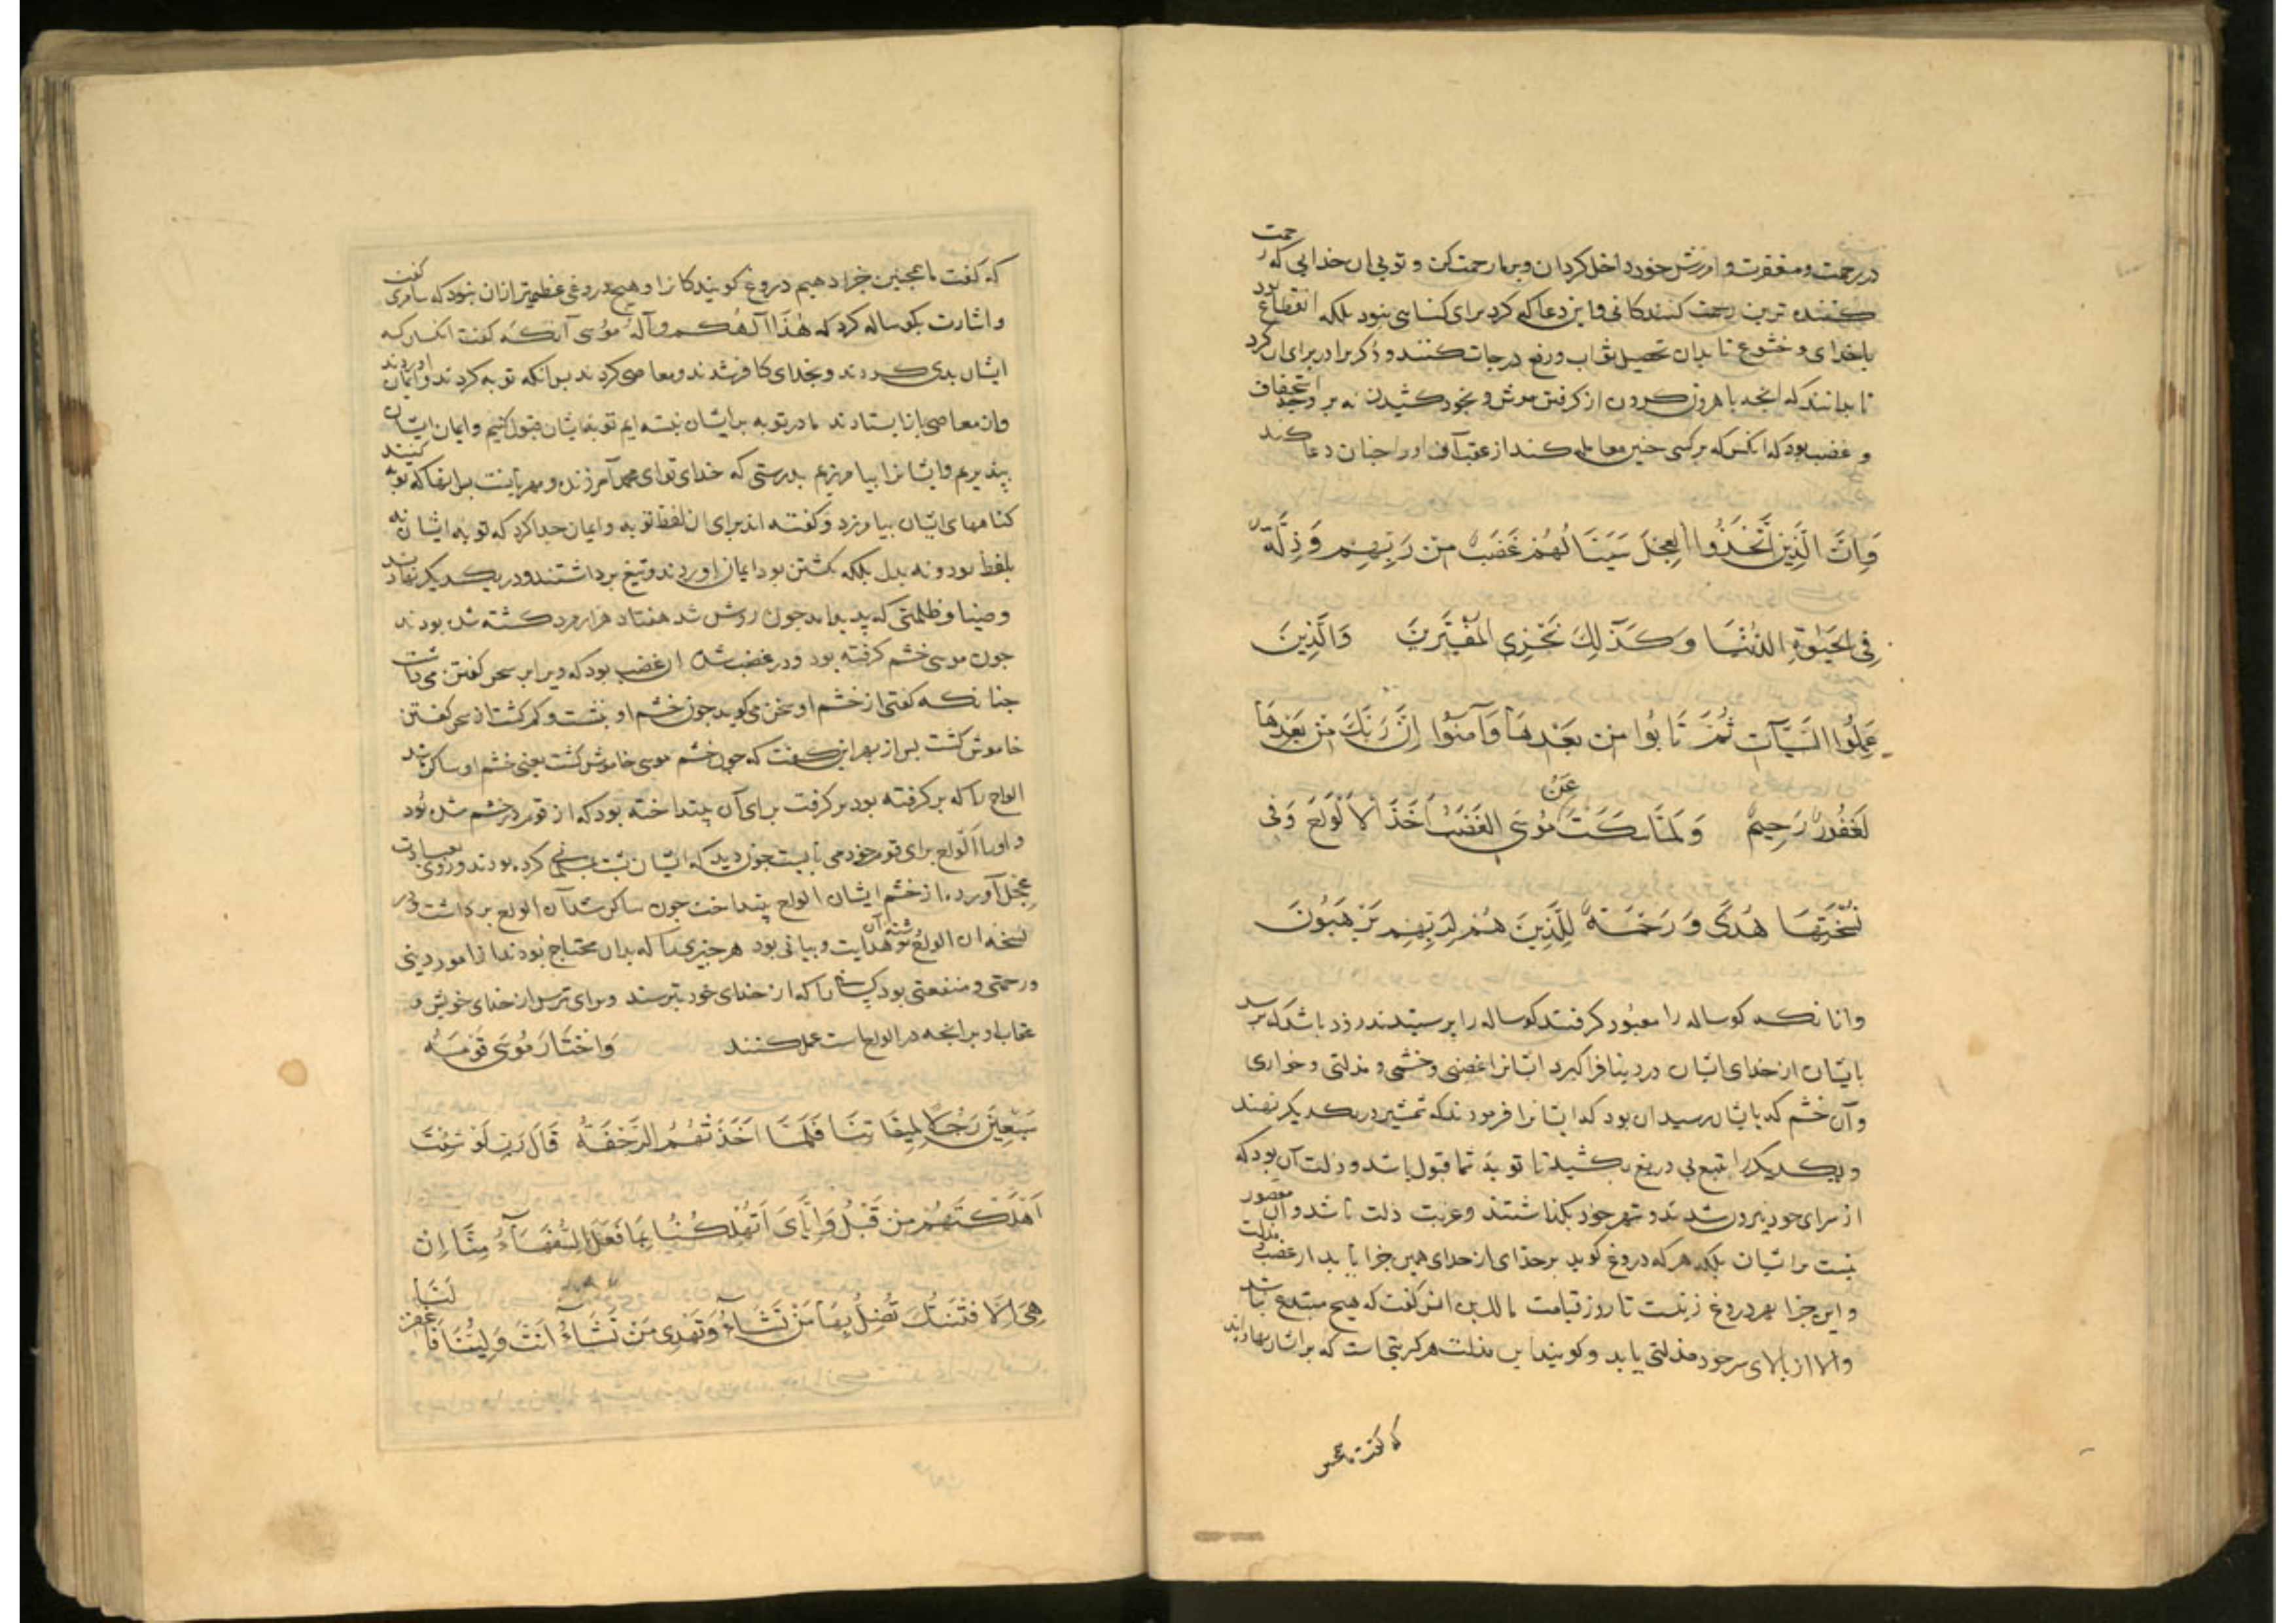 در رحمت و مغفرت و امرزش خود داخل کردان و بر ما رحمت کن و تویی ان خدایی که رحمت
کننده ترین رحمت کنندکانی و این دعا که کرد برای کناهی نبود بلکه انقطاع بود
باخدای و خشوع تا بدان تحصیل ثواب و رفع درجات کنند و ذکر برادر برای ان کرد
تا بدانند که انجه با هرون کردن از کرفتن موش و بخود کشیدن نه بر وجه استخفاف
و غضب بود که انکس که بر کسی جنین معامله کند از عقب آن او را جنان دعا کند
وَاِنَّ الَّذِینَ اتَّخَذُوا العِجلَ سَیَنَالُهُمْ غَضَبٌ مِن رَبِهِم وَ ذِلَّةٌ
فِی الحَیٰوةِ الدُنْیَا وَکَذٰلِكَ نَجْزِی المُفْتَرِینَ وَالَّذِینَ
عَمِلُوا السَیّآتِ ثُمَّ تَابُوا مِن بَعْدِهَا وَآمنُوا اِنَّ رَبَكَ مِن بَعْدِهَا
لَغَفُورٌ رَحِیمٌ وَلَمَّا سَکَتَ عَنْ مُوسَی الغَضَبُ اَخَذَ الاَلْوَاحَ وَفی
نُسْخَتِهَا هُدًی وَ رَحْمَةٌ لِلَّذِینَ هُمْ لِرَبِهِم یَرْهَبُونَ
و انانکه کوساله را معبود کرفتند کوساله را پرستیدند زود باشد که برسد
بایشان از خدای ایشان در دنیا فراکیرد ایشانرا غضبی و خشمی و مذلتی و خواری
و آن خشم که بایشان رسید ان بود که ایشانرا فرمودند که شمشیر در یکدیکر نهند
و یکدیکر را بتیغ بی دریغ بکشید تا توبۀ شما قبول باشد و ذلت آن بود که
از سرای خود بیرون شدند و شهر خود بکذاشتند و غربت ذلت باشد و آن مقصور
نیست بر ایشان بلکه هر که دروغ کوید بر خدای از خدای همین جزا یابد از غضب و مذلت
و این جزا بهر دروغ زنیست تا روز قیامت مالک بن انس کفت که هیچ مبتدع نباشد
والا از بالای سر خود مذلتی یابد و کویند این مذلت هر کز یتی است که بر ایشان نهاده اند
که کفت ما همجنین
که کفت ما همجنین جزا دهیم دروغ کویندکانرا و هیچ دروغی عظیم تر ازان نبود که سامری کفت
و اشارت بکوساله کرد که هٰذَا آلهُکُم و آلهُ مُوسٰی آنکه کفت انکسان که
ایشان بدی کردند و بخدای کافر شدند و معاصی کردند بس انکه توبه کردند و ایمان اوردند
و از معاصی باز ایستادند ما در توبه بر ایشان نبسته ایم توبۀ ایشان قبول کنیم و ایمان ایشان
ببذیریم و ایشانرا بیامرزیم بدرستی که خدای تو ای محمد آمرزنده و مهربانست بس ازانکه توبه کنند
کناههای ایشان بیامرزد و کفته اند برای ان لفظ توبه و ایمان جدا کرد که توبه ایشان نه
بلفظ بود و نه بدل بلکه بکشتن بود ایمان اوردند و تیغ برداشتند و در یکدیکر نهادند
و ضیا و ظلمتی که پدید امد جون روشن شد هفتاد هزار مرد کشته شده بودند
جون موسی خشم کرفته بود و در غضب شده از غضب بود که ویرا بر سخن کفتن می داشت
جنانکه کفتی از خشم او سخن می کوید جون خشم او بنشست و کم کشت از سخن کفتن
خاموش کشت بس از بهر این کفت که جون خشم موسی خاموش کشت یعنی خشم او ساکن شد
الواح را که بر کرفته بود بر کرفت برای آن بینداخته بود که از قوم در خشم شده بود
و او را اَلواح برای قوم خود می بایست جون دید که ایشان بت پرستی کرده بودند و روی بعبادت
عِجْل آورده از خشم ایشان الواح بینداخت جون ساکن شد آن الواح بر داشت و در
نسخه ان الواح نوشته آن هدایت و بیانی بود هر جیزی را که بدان محتاج بودند از امور دینی
و رحمتی و منفعتی بود کسانی را که از خدای خود بترسند و برای ترس از خدای خویش و
عقاب او بر انجه در الواح است عمل کنند وَاخْتَارَ مُوسَی قَوْمَهُ
سَبْعِینَ رَجُلاً لِمِیقَاتِنَا فَلَمَّا اَخَذَتْهُمُ الرَّجْفَةُ قَالَ رَبِّ لَوْ شِئْتَ
اَهْلَکْتَهُمْ مِن قَبْلُ وَاِیَّایَ اَتُهْلِکُنَا بِمَا فَعَلَ السُّفَهَآءُ مِنَّا اِنْ
هِیَ اِلَّا فِتْنَتُكَ تُضِلُّ بِهَا مَنْ تَشَآءُ وَتَهْدِی مَنْ تَشَآءُ اَنْتَ وَلِیُّنَا فَاغْفِرْ لَنَا